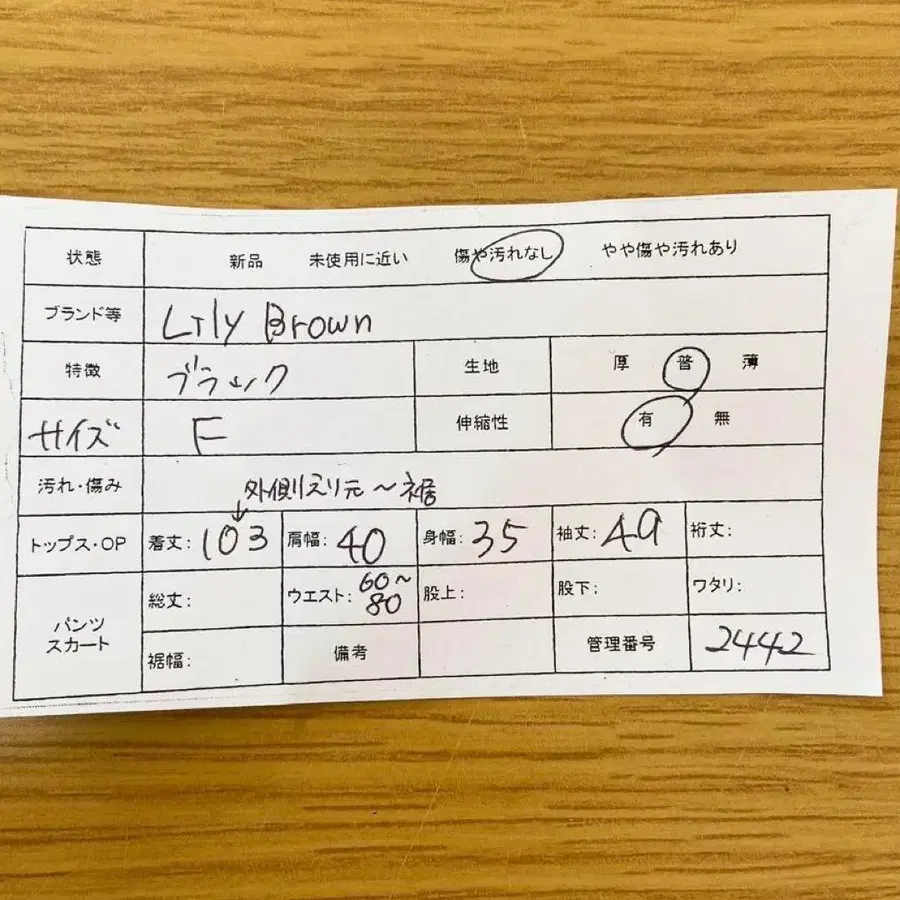 状態 新品 未使用に近い 傷や汚れなし やや傷や汚れあり
ブランド等 Lily Brown
特徴 ブラック 生地 厚 普 薄
サイズ F 伸縮性 有 無
汚れ・傷み 外側えり元〜裾
トップス・OP 着丈: 103 肩幅: 40 身幅: 35 袖丈: 49 裄丈:
パンツ
スカート
総丈: ウエスト: 60〜80 股上: 股下: ワタリ:
裾幅: 備考 管理番号 2442